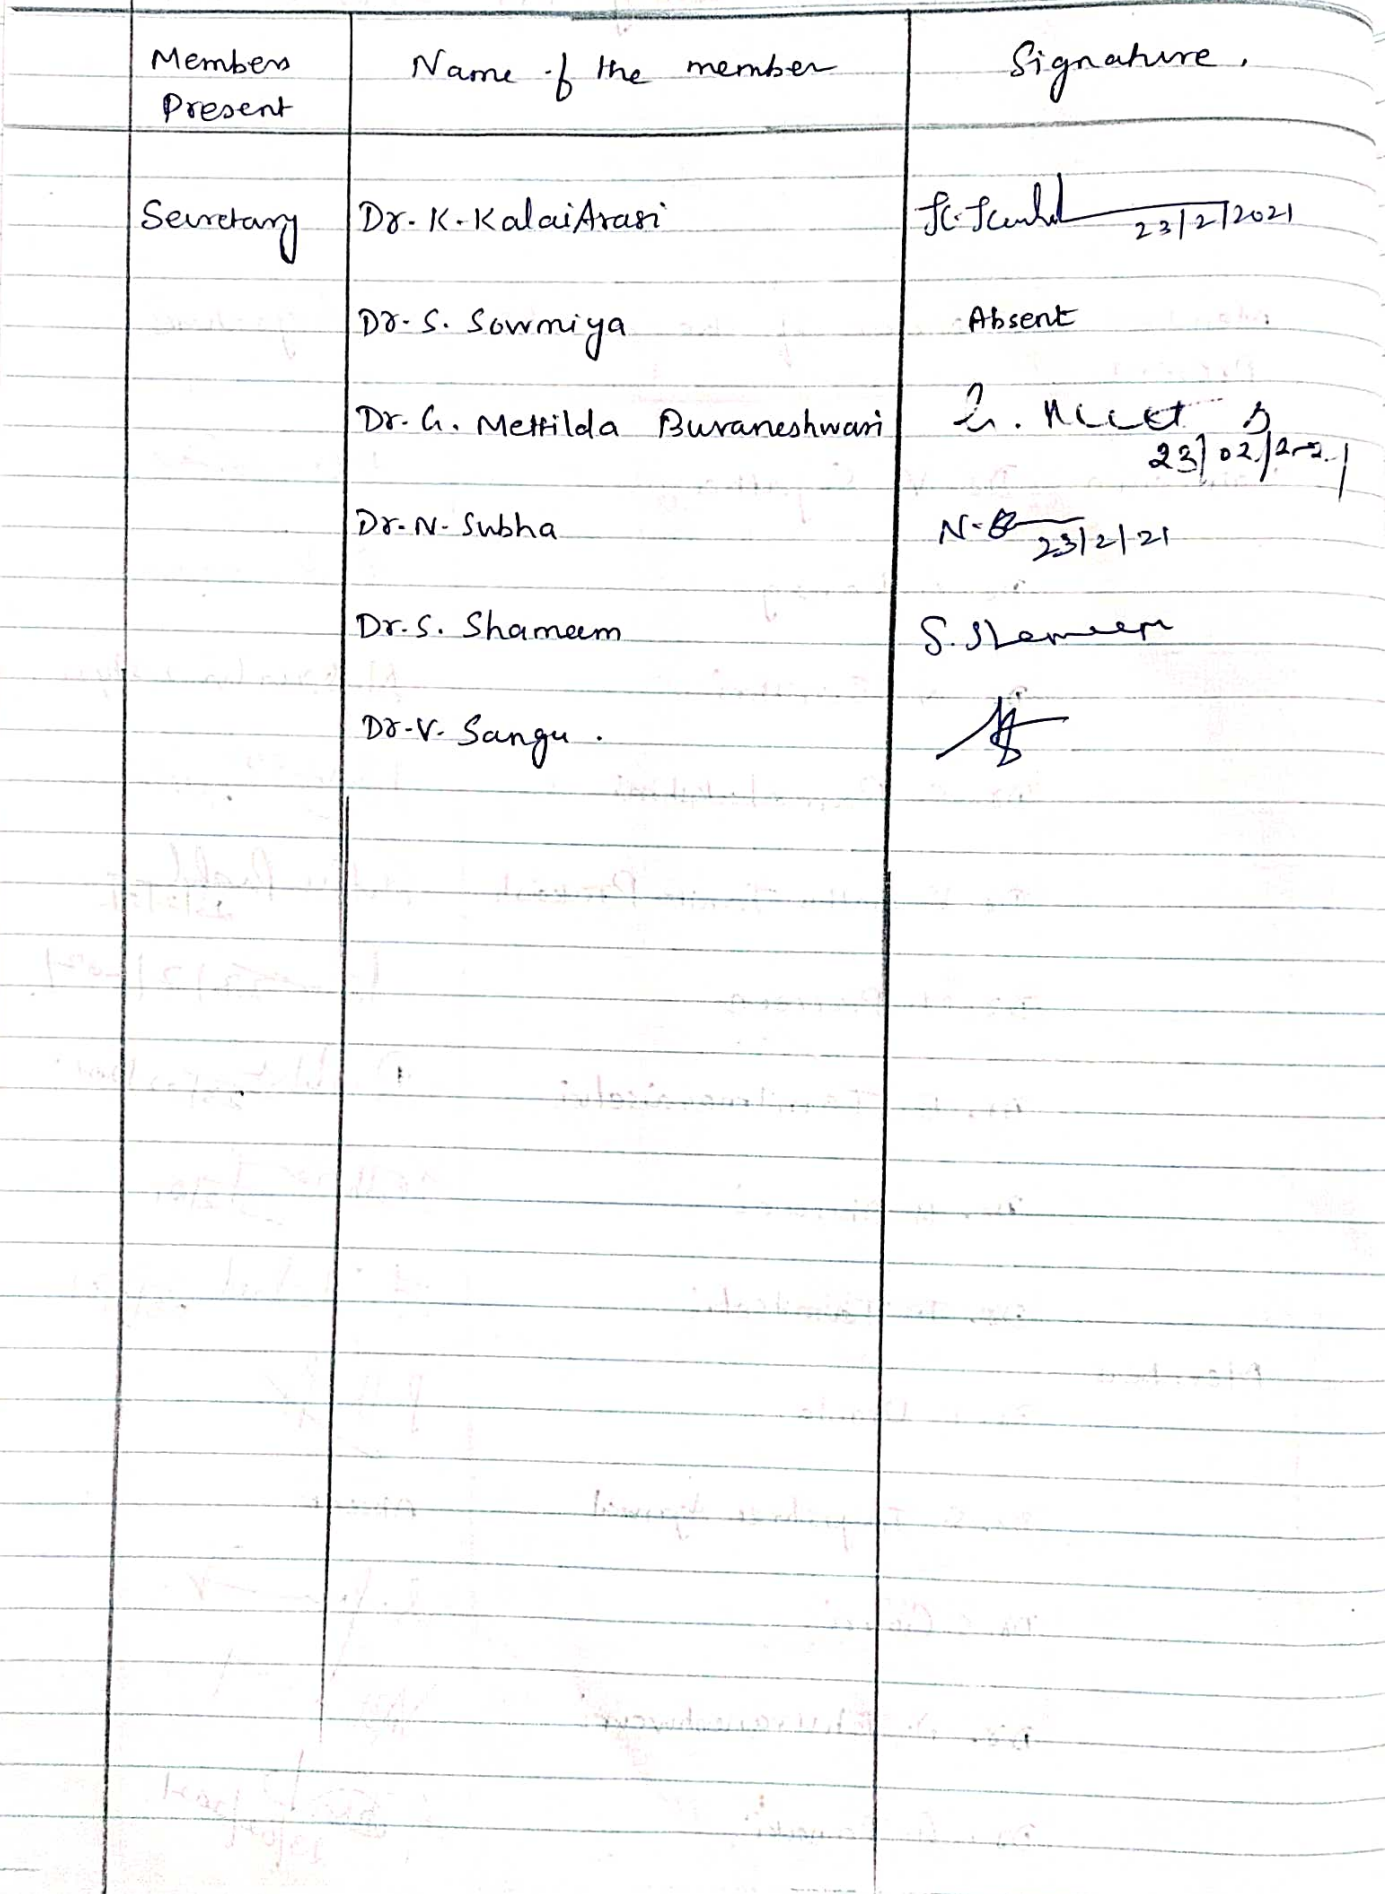 Members Present
Name of the member
Signature.
Secretary Dr. K. KalaiArasi 23/2/2021
Dr. S. Sowmiya Absent
Dr. G. Mettilda Buvaneshwari
23/02/2021
Dr. N. Subha N.
23/2/21
Dr. S. Shameem S. Shameem
Dr. V. Sangu.